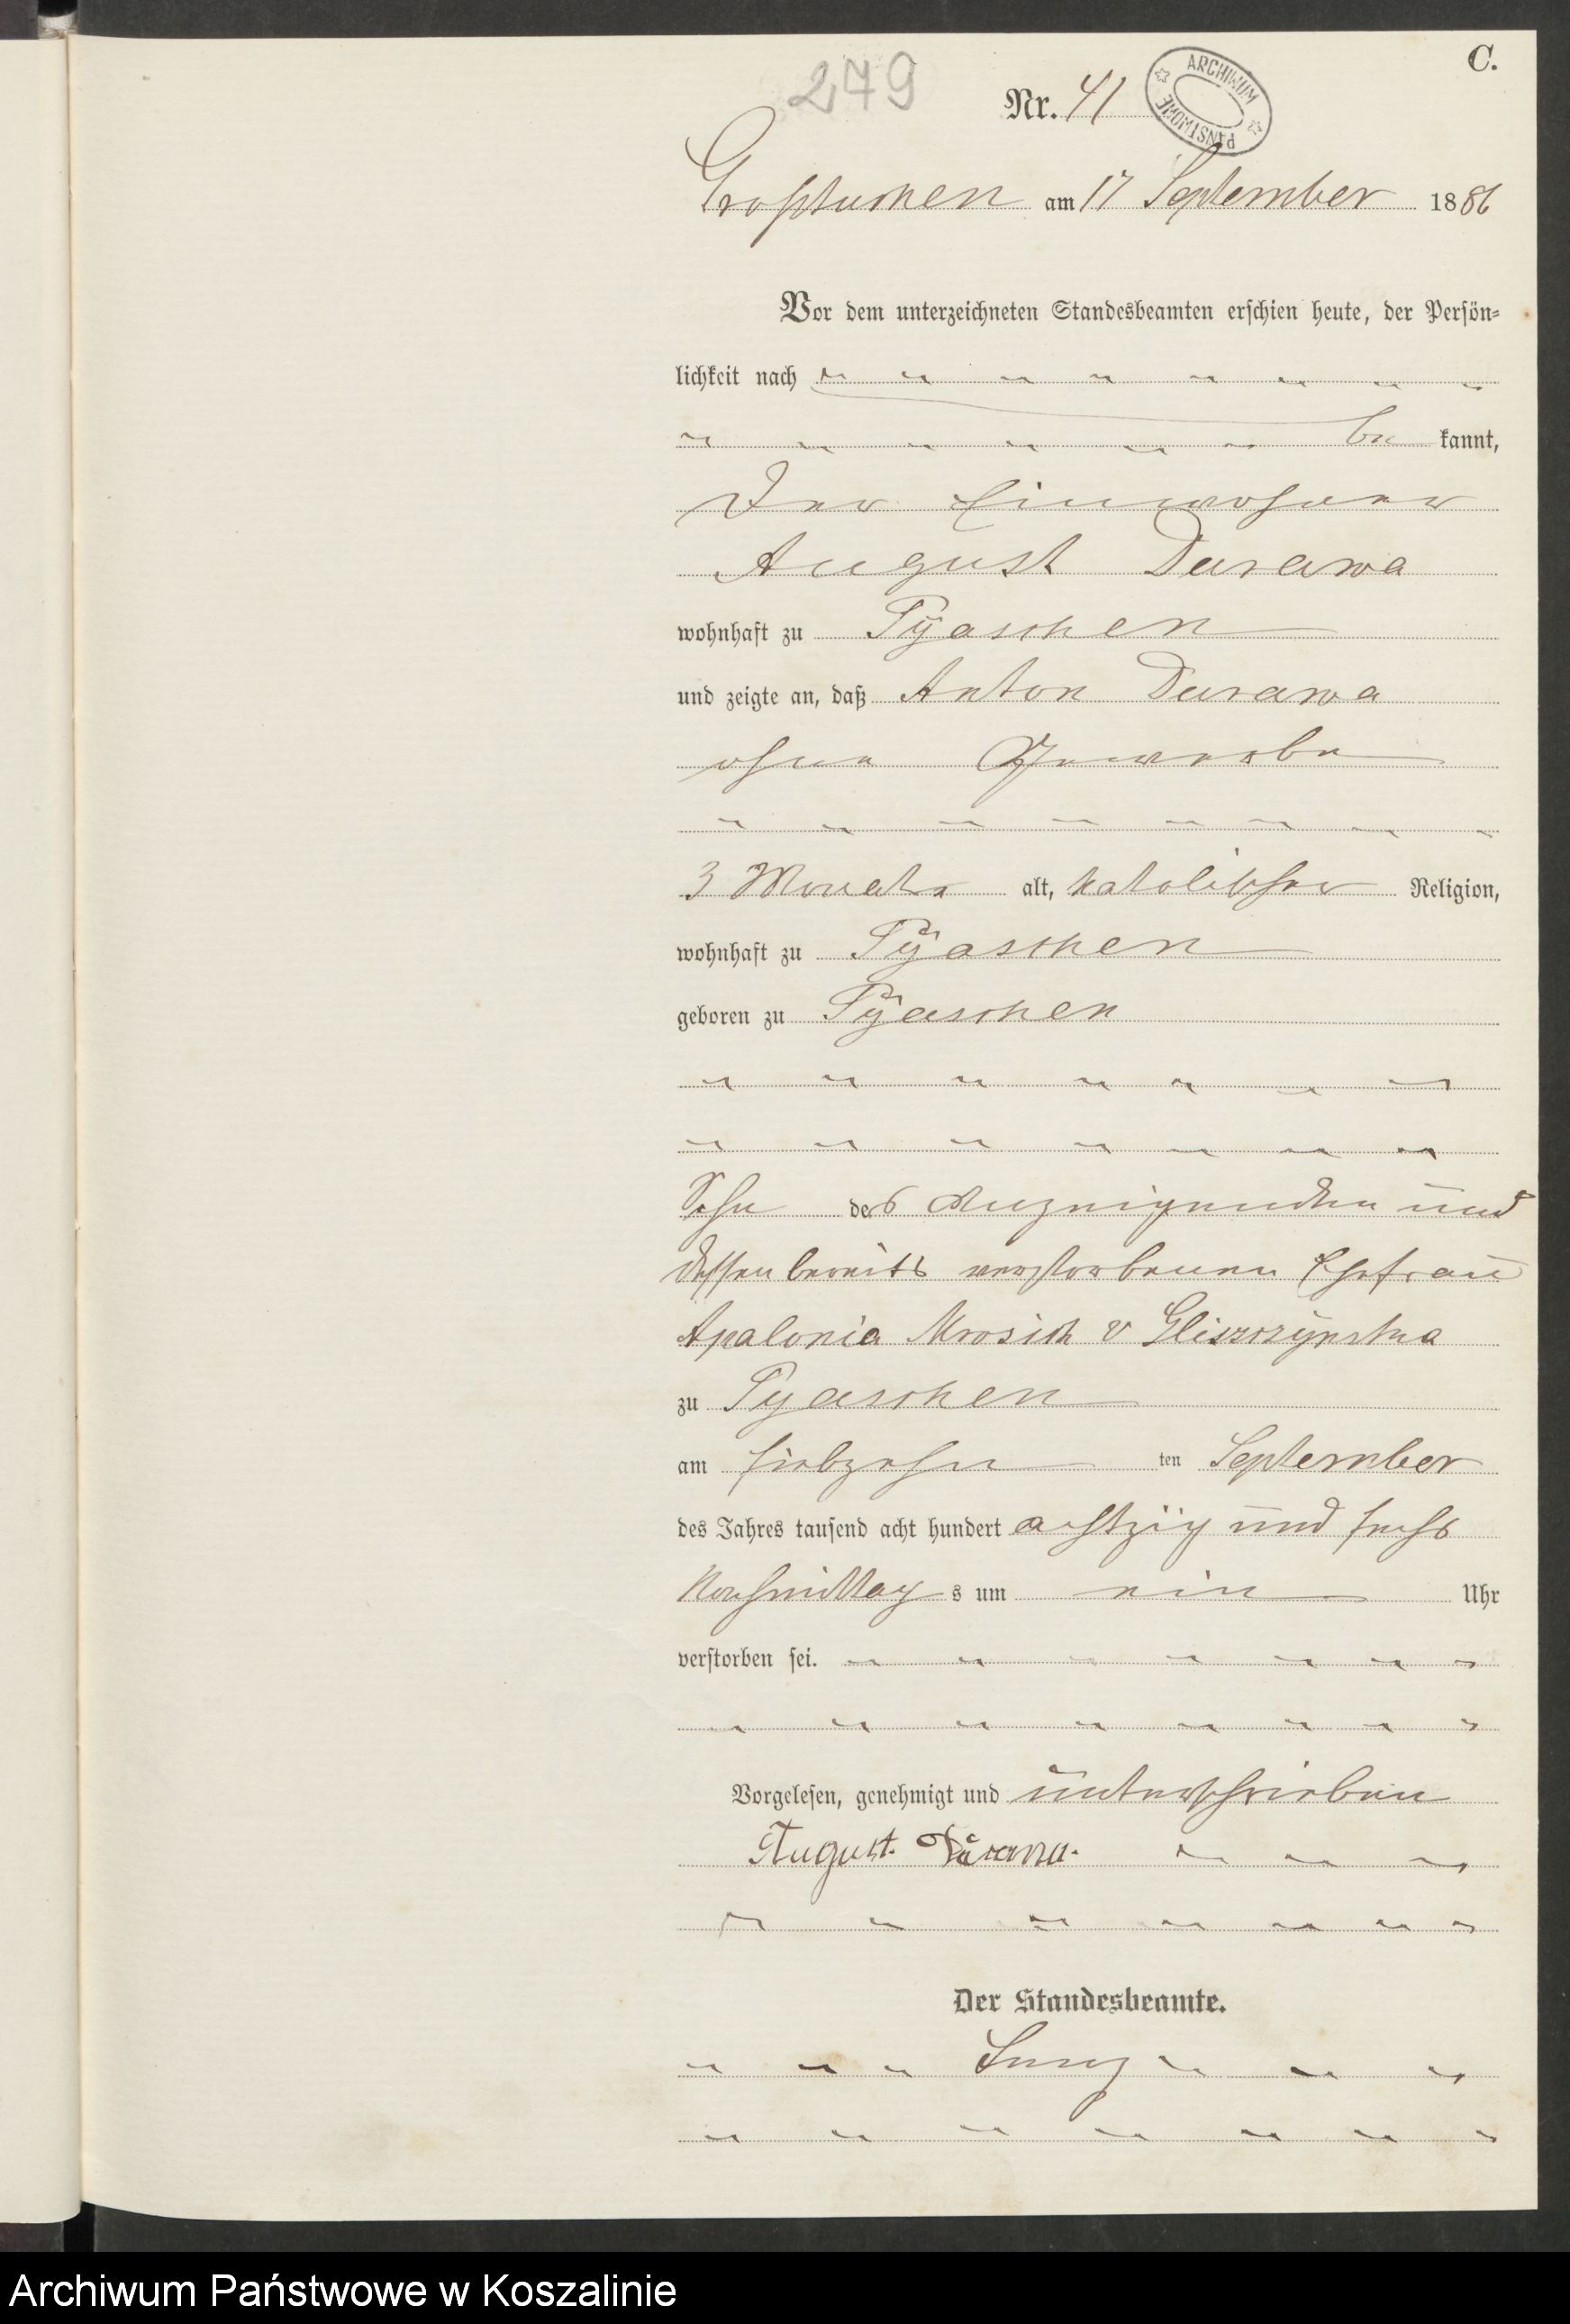 C.
279
Nr. 41
ARCHIWUM PAŃSTWOWE
Groß tuchen am 17 September 1886
Vor dem unterzeichneten Standesbeamten erschien heute, der Persön-
lichkeit nach
be kannt,
Der Einwohner
August Darawa
wohnhaft zu Pÿaschen
und zeigte an, daß Anton Durawa
ohne Gewerbe
3 Monate alt, katolischer Religion,
wohnhaft zu Pÿaschen
geboren zu Pÿaschen
Sohn des Anzeigenden und
dessen bereits verstorbenen Ehefrau
Apalonia Mrosick v Gliszczÿnska
zu Pyaschen
am siebzehn ten September
des Jahres tausend acht hundert achtzig und sechs
Nachmittag s um ein Uhr
verstorben sei.
Vorgelesen, genehmigt und unterschrieben
August. Durawa.
Der Standesbeamte.
Archiwum Państwowe w Koszalinie